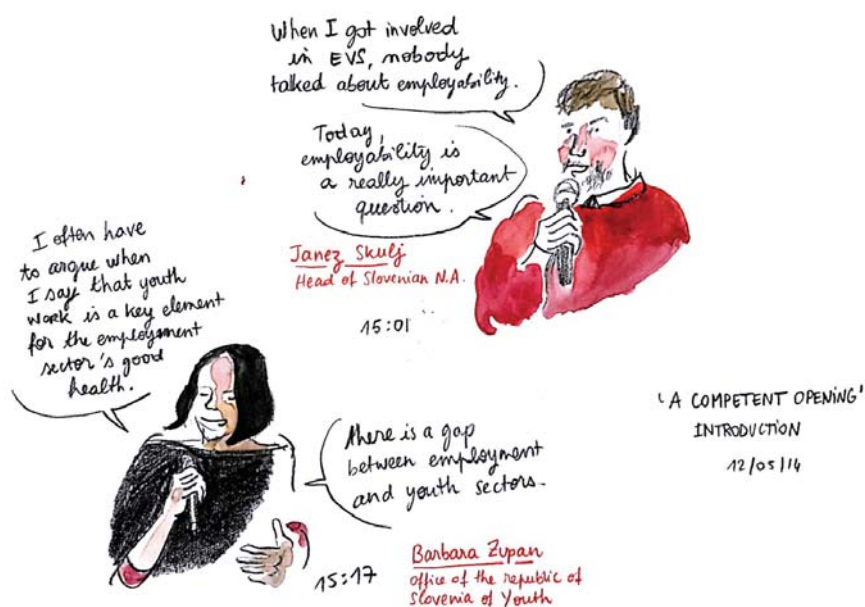 When I got involved
in EVS, nobody
talked about employability.
Today,
employability is
a really important
question.
Janez Skulj
Head of Slovenian N.A.
15:01
I often have
to argue when
I say that youth
work is a key element
for the employment
sector's good
health.
there is a gap
between employment
and youth sectors.
15:17
Barbara Zupan
office of the republic of
Slovenia of Youth
'A COMPETENT OPENING'
INTRODUCTION
12/05/14